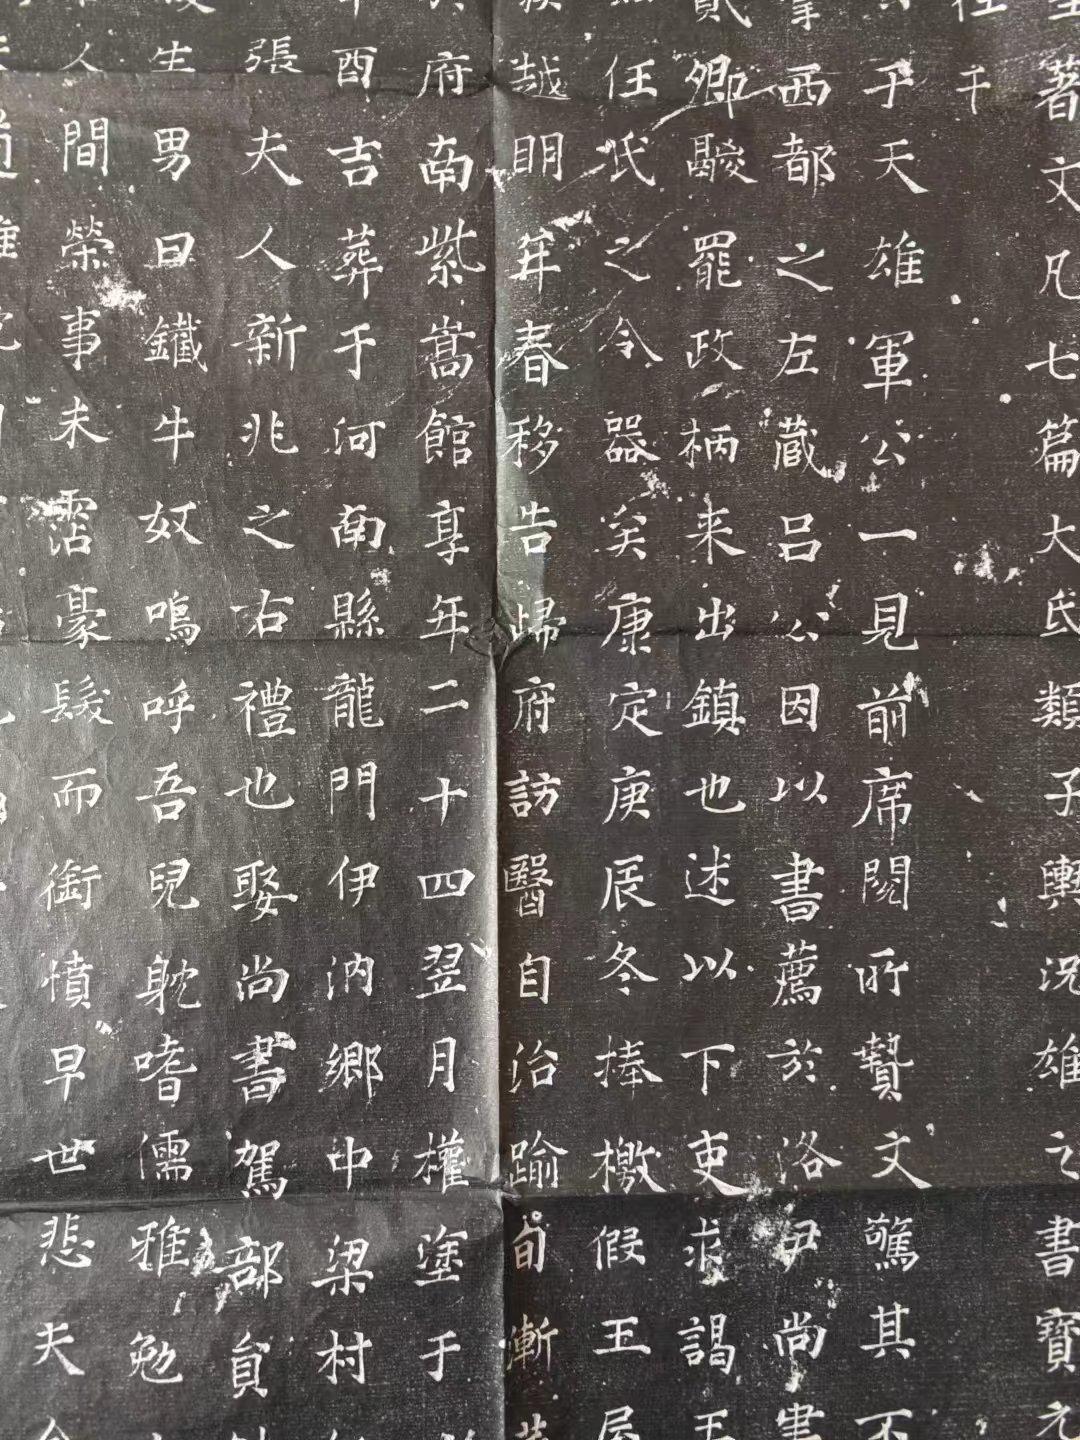 著文凡七篇大氏類子輿況雄之書寶元
任千
于天雄軍公一見前席閱所贄文驚其不
西都之左藏呂公因以書薦於洛尹尚書
貳卿毆罷政柄来出鎮也述以下吏求謁王
任氏之令器矣康定庚辰冬捧檄假王屋
越明年春移告歸府訪醫自治踰旬漸
府南紫嵩館享年二十四翌月權塗于
酉吉葬于河南縣龍門伊汭鄉中梁村
張夫人新兆之右禮也娶尚書駕部員
生男曰鐵牛奴嗚呼吾兒躭嗜儒雅勉
人間榮事未霑豪髮而銜憤早世悲夫